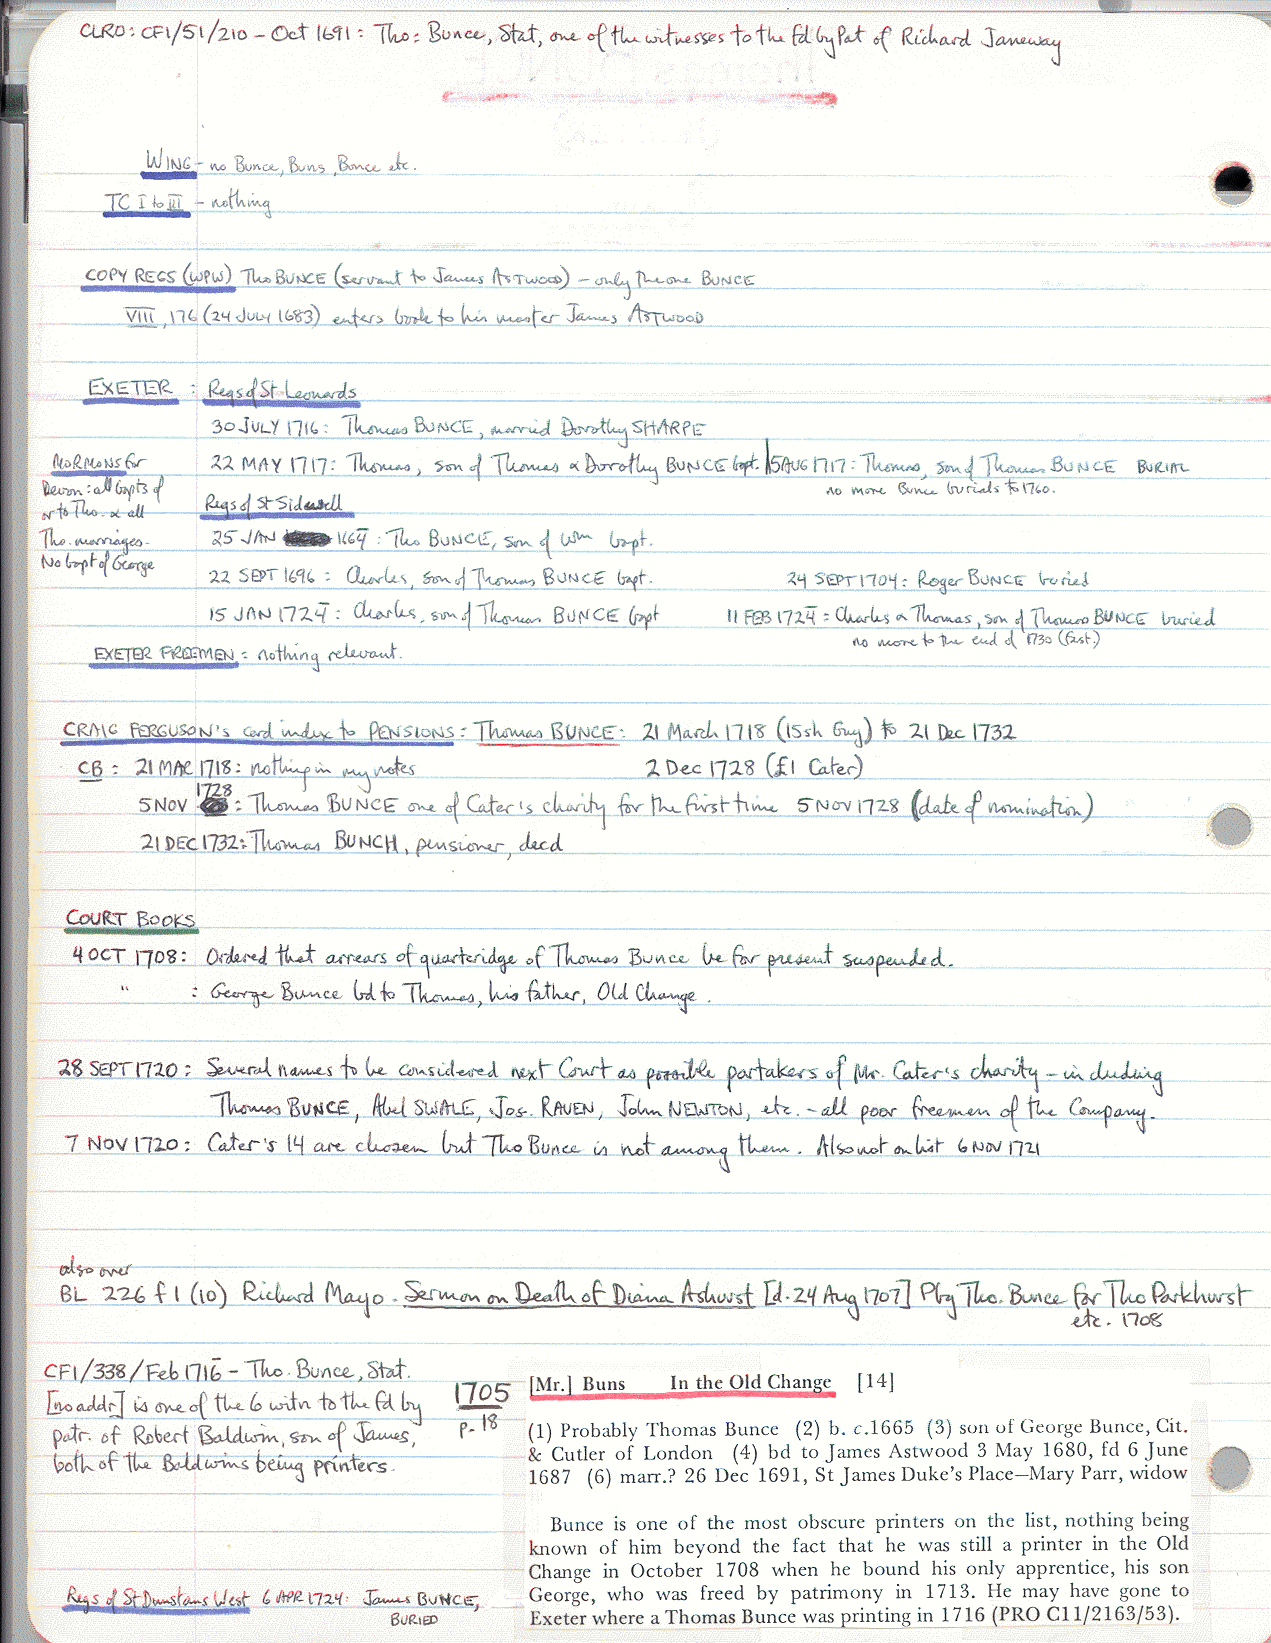 CLRO: CF1/51/210 - Oct 1691: Tho: Bunce, Stat, one of the witnesses to the fd by Pat of Richard Janeway
WING - no Bunce, Buns, Bonce etc.
TC I to III - nothing
COPY REGS (WPW) Tho BUNCE (servant to James ASTWOOD) - only the one BUNCE
VIII, 176 (24 JULY 1683) enters book to his master James ASTWOOD
EXETER : Regs of St Leonards
30 JULY 1716: Thomas BUNCE, married Dorothy SHARPE
22 MAY 1717: Thomas, son of Thomas & Dorothy BUNCE bapt. 15 AUG 1717: Thomas, son of Thomas BUNCE BURIAL
no more Bunce burials to 1760.
MORMONS for
Devon: all bapts of
or to Tho. & all
Tho. marriages.
No bapt of George
Regs of St Sidwell
25 JAN 166: Tho BUNCE, son of Wm bapt.
22 SEPT 1696: Charles, son of Thomas BUNCE bapt. 24 SEPT 1704: Roger BUNCE buried
15 JAN 1724: Charles, son of Thomas BUNCE bapt 11 FEB 1724: Charles & Thomas, son of Thomas BUNCE buried
no more to the end of 1730 (fast)
EXETER FREEMEN: nothing relevant.
CRAIG FERGUSON's card index to PENSIONS: Thomas BUNCE: 21 March 1718 (15sh Guy) to 21 Dec 1732
CB: 21 MAR 1718: nothing in my notes 2 Dec 1728 (£1 Cater)
5 NOV 1728: Thomas BUNCE one of Cater's charity for the first time 5 NOV 1728 (date of nomination)
21 DEC 1732: Thomas BUNCH, pensioner, decd
COURT BOOKS
4 OCT 1708: Ordered that arrears of quarteridge of Thomas Bunce be for present suspended.
" : George Bunce bd to Thomas, his father, Old Change.
28 SEPT 1720: Several names to be considered next Court as possible partakers of Mr. Cater's charity - including
Thomas BUNCE, Abel SWALE, Jos. RAVEN, John NEWTON, etc. - all poor freemen of the Company.
7 NOV 1720: Cater's 14 are chosen but Tho Bunce is not among them. Also not on list 6 NOV 1721
also over
BL 226 f 1 (10) Richard Mayo. Sermon on Death of Diana Ashurst [d. 24 Aug 1707] P by Tho. Bunce for Tho Parkhurst
etc. 1708
CF1/338/Feb 1716 - Tho. Bunce, Stat.
[no addr] is one of the 6 witn to the fd by
patr. of Robert Baldwin, son of James,
both of the Baldwins being printers.
1705
p. 18
[Mr.] Buns In the Old Change [14]
(1) Probably Thomas Bunce (2) b. c.1665 (3) son of George Bunce, Cit.
& Cutler of London (4) bd to James Astwood 3 May 1680, fd 6 June
1687 (6) marr.? 26 Dec 1691, St James Duke's Place—Mary Parr, widow
Bunce is one of the most obscure printers on the list, nothing being
known of him beyond the fact that he was still a printer in the Old
Change in October 1708 when he bound his only apprentice, his son
George, who was freed by patrimony in 1713. He may have gone to
Exeter where a Thomas Bunce was printing in 1716 (PRO C11/2163/53).
Regs of St Dunstans West 6 APR 1724: James BUNCE,
BURIED